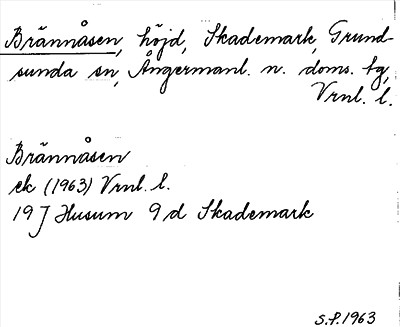 Brännåsen, höjd, Skademark, Grund-
sunda sn, Ångermanl. n. doms. tg,
Vrnl. l.
Brännåsen
ek (1963) Vrnl. l.
19 J Husum 9 d Skademark
S.F. 1963